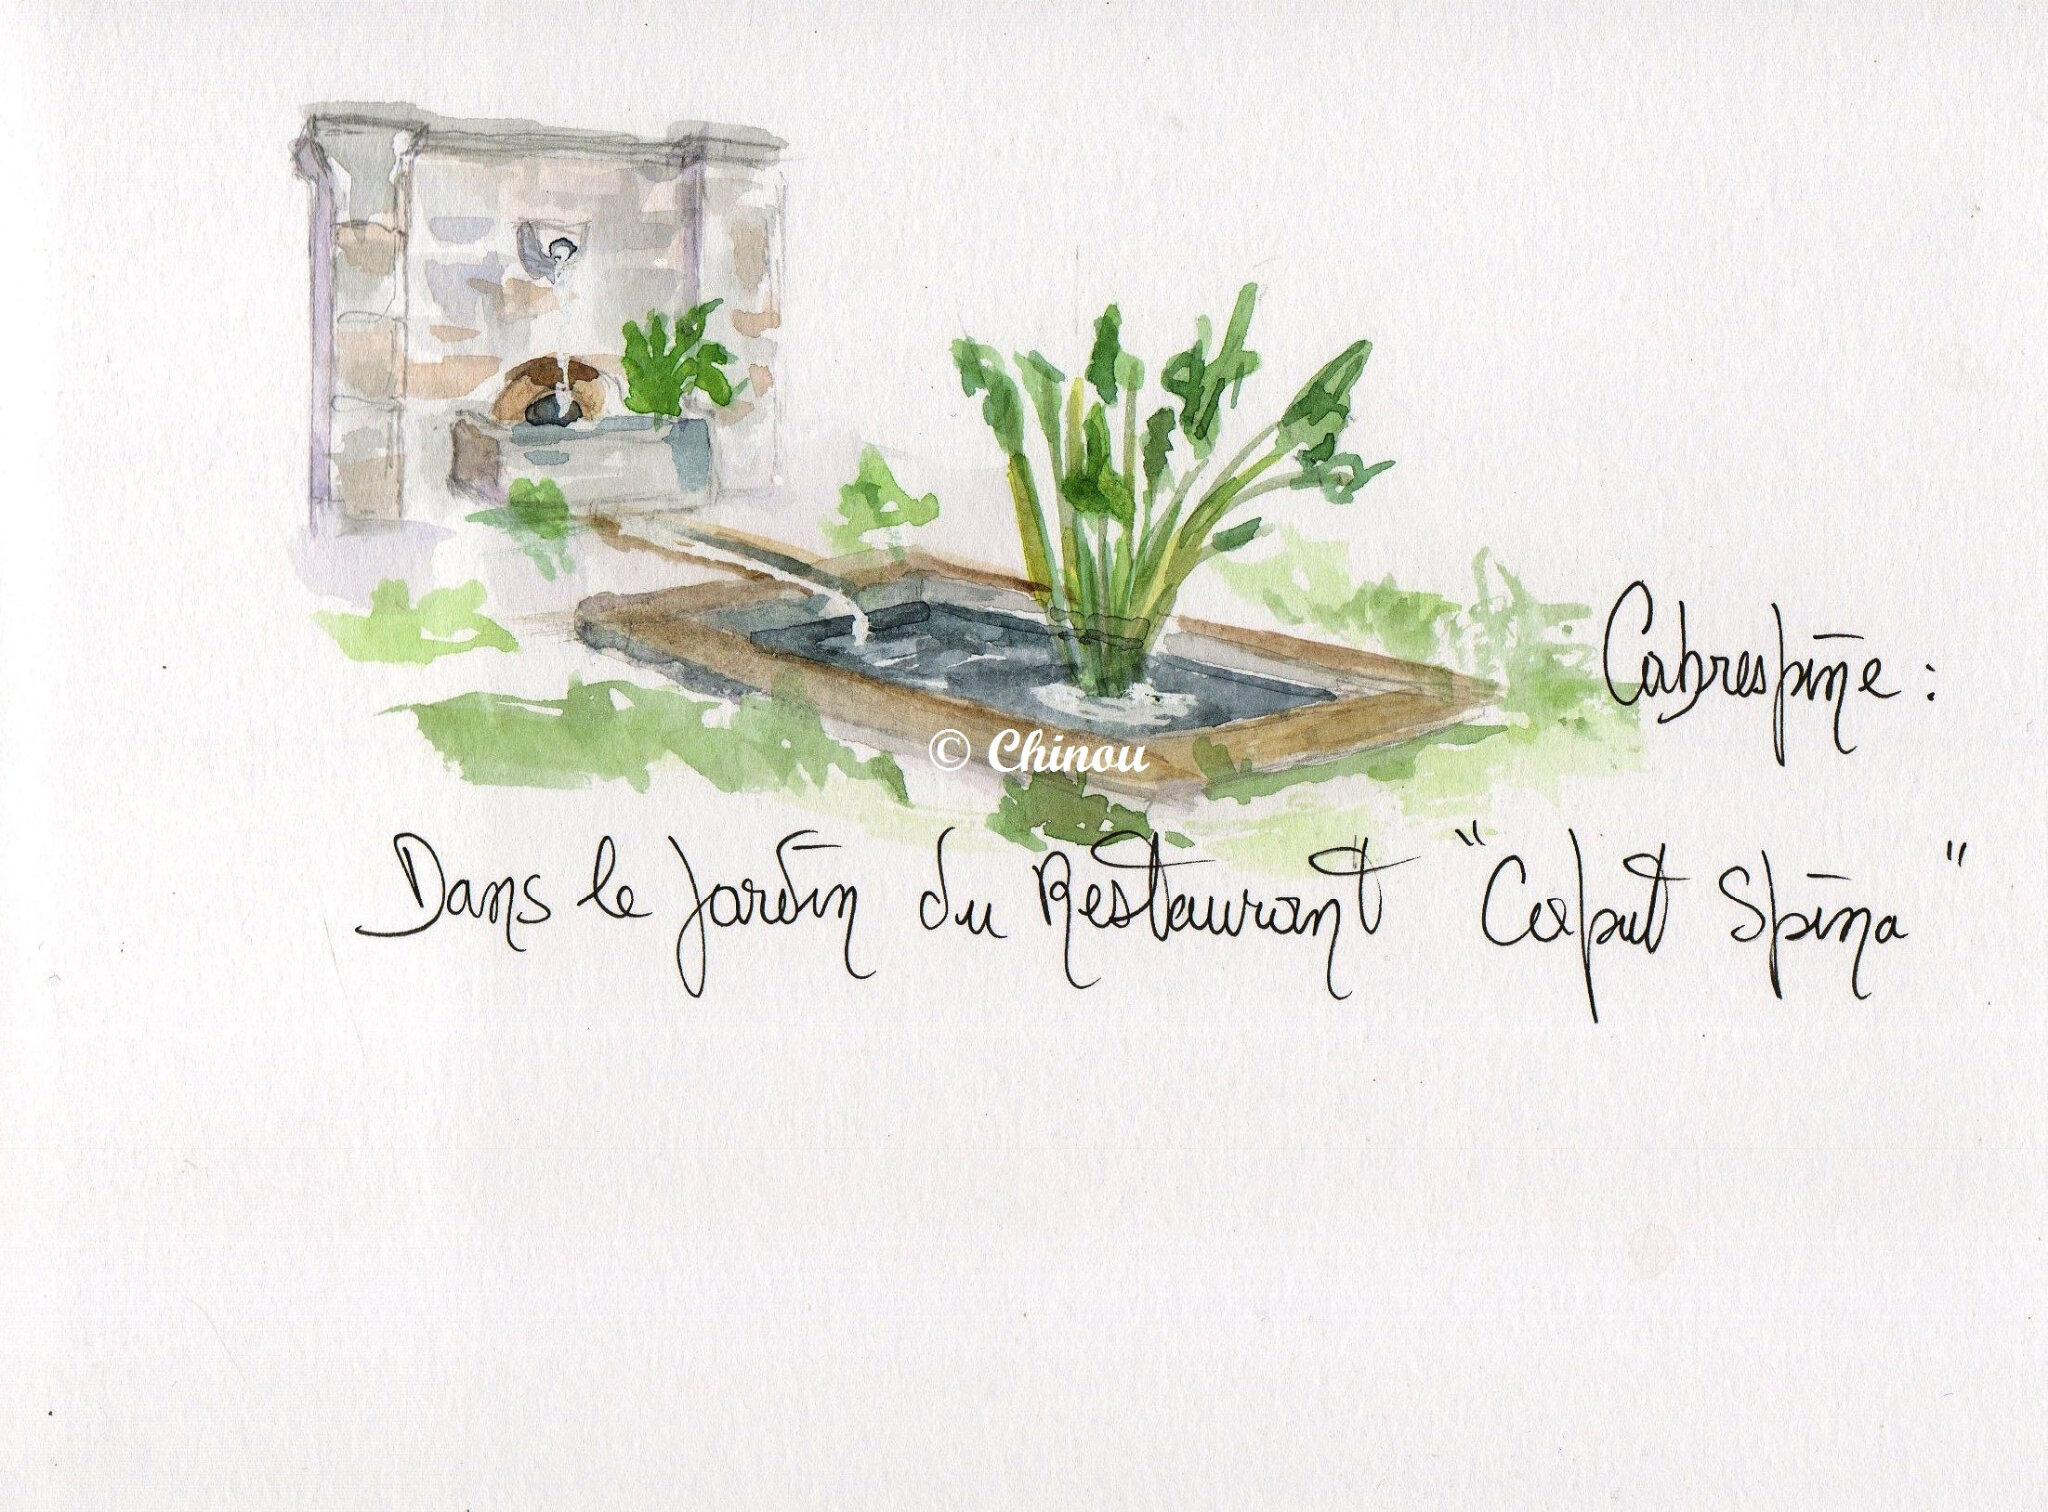 Cabrespine :
© Chinou
Dans le Jardin du Restaurant "Caput Spina"